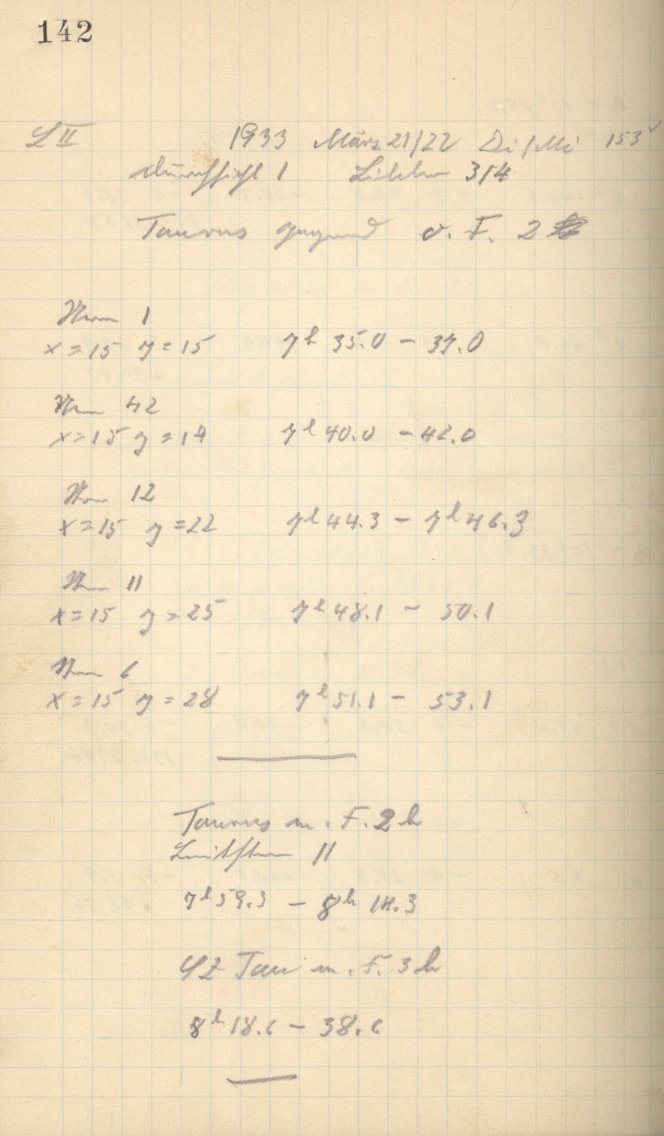 142
L II 1933 März 21/22 Di/Mi 153
Durchsicht 1 3/4
Taurus gegend o. F. 2
Stern 1
x=15 y=15 7h 35.0 - 37.0
Stern 42
x=15 y=19 7h 40.0 - 42.0
Stern 12
x=15 y=22 7h 44.3 - 7h 46.3
Stern 11
x=15 y=25 7h 48.1 - 50.1
Stern 6
x=15 y=28 7h 51.1 - 53.1
Taurus m. F. 2h
Leitstern 11
7h 59.3 - 8h 14.3
42 Tau m. F. 3h
8h 18.6 - 38.6